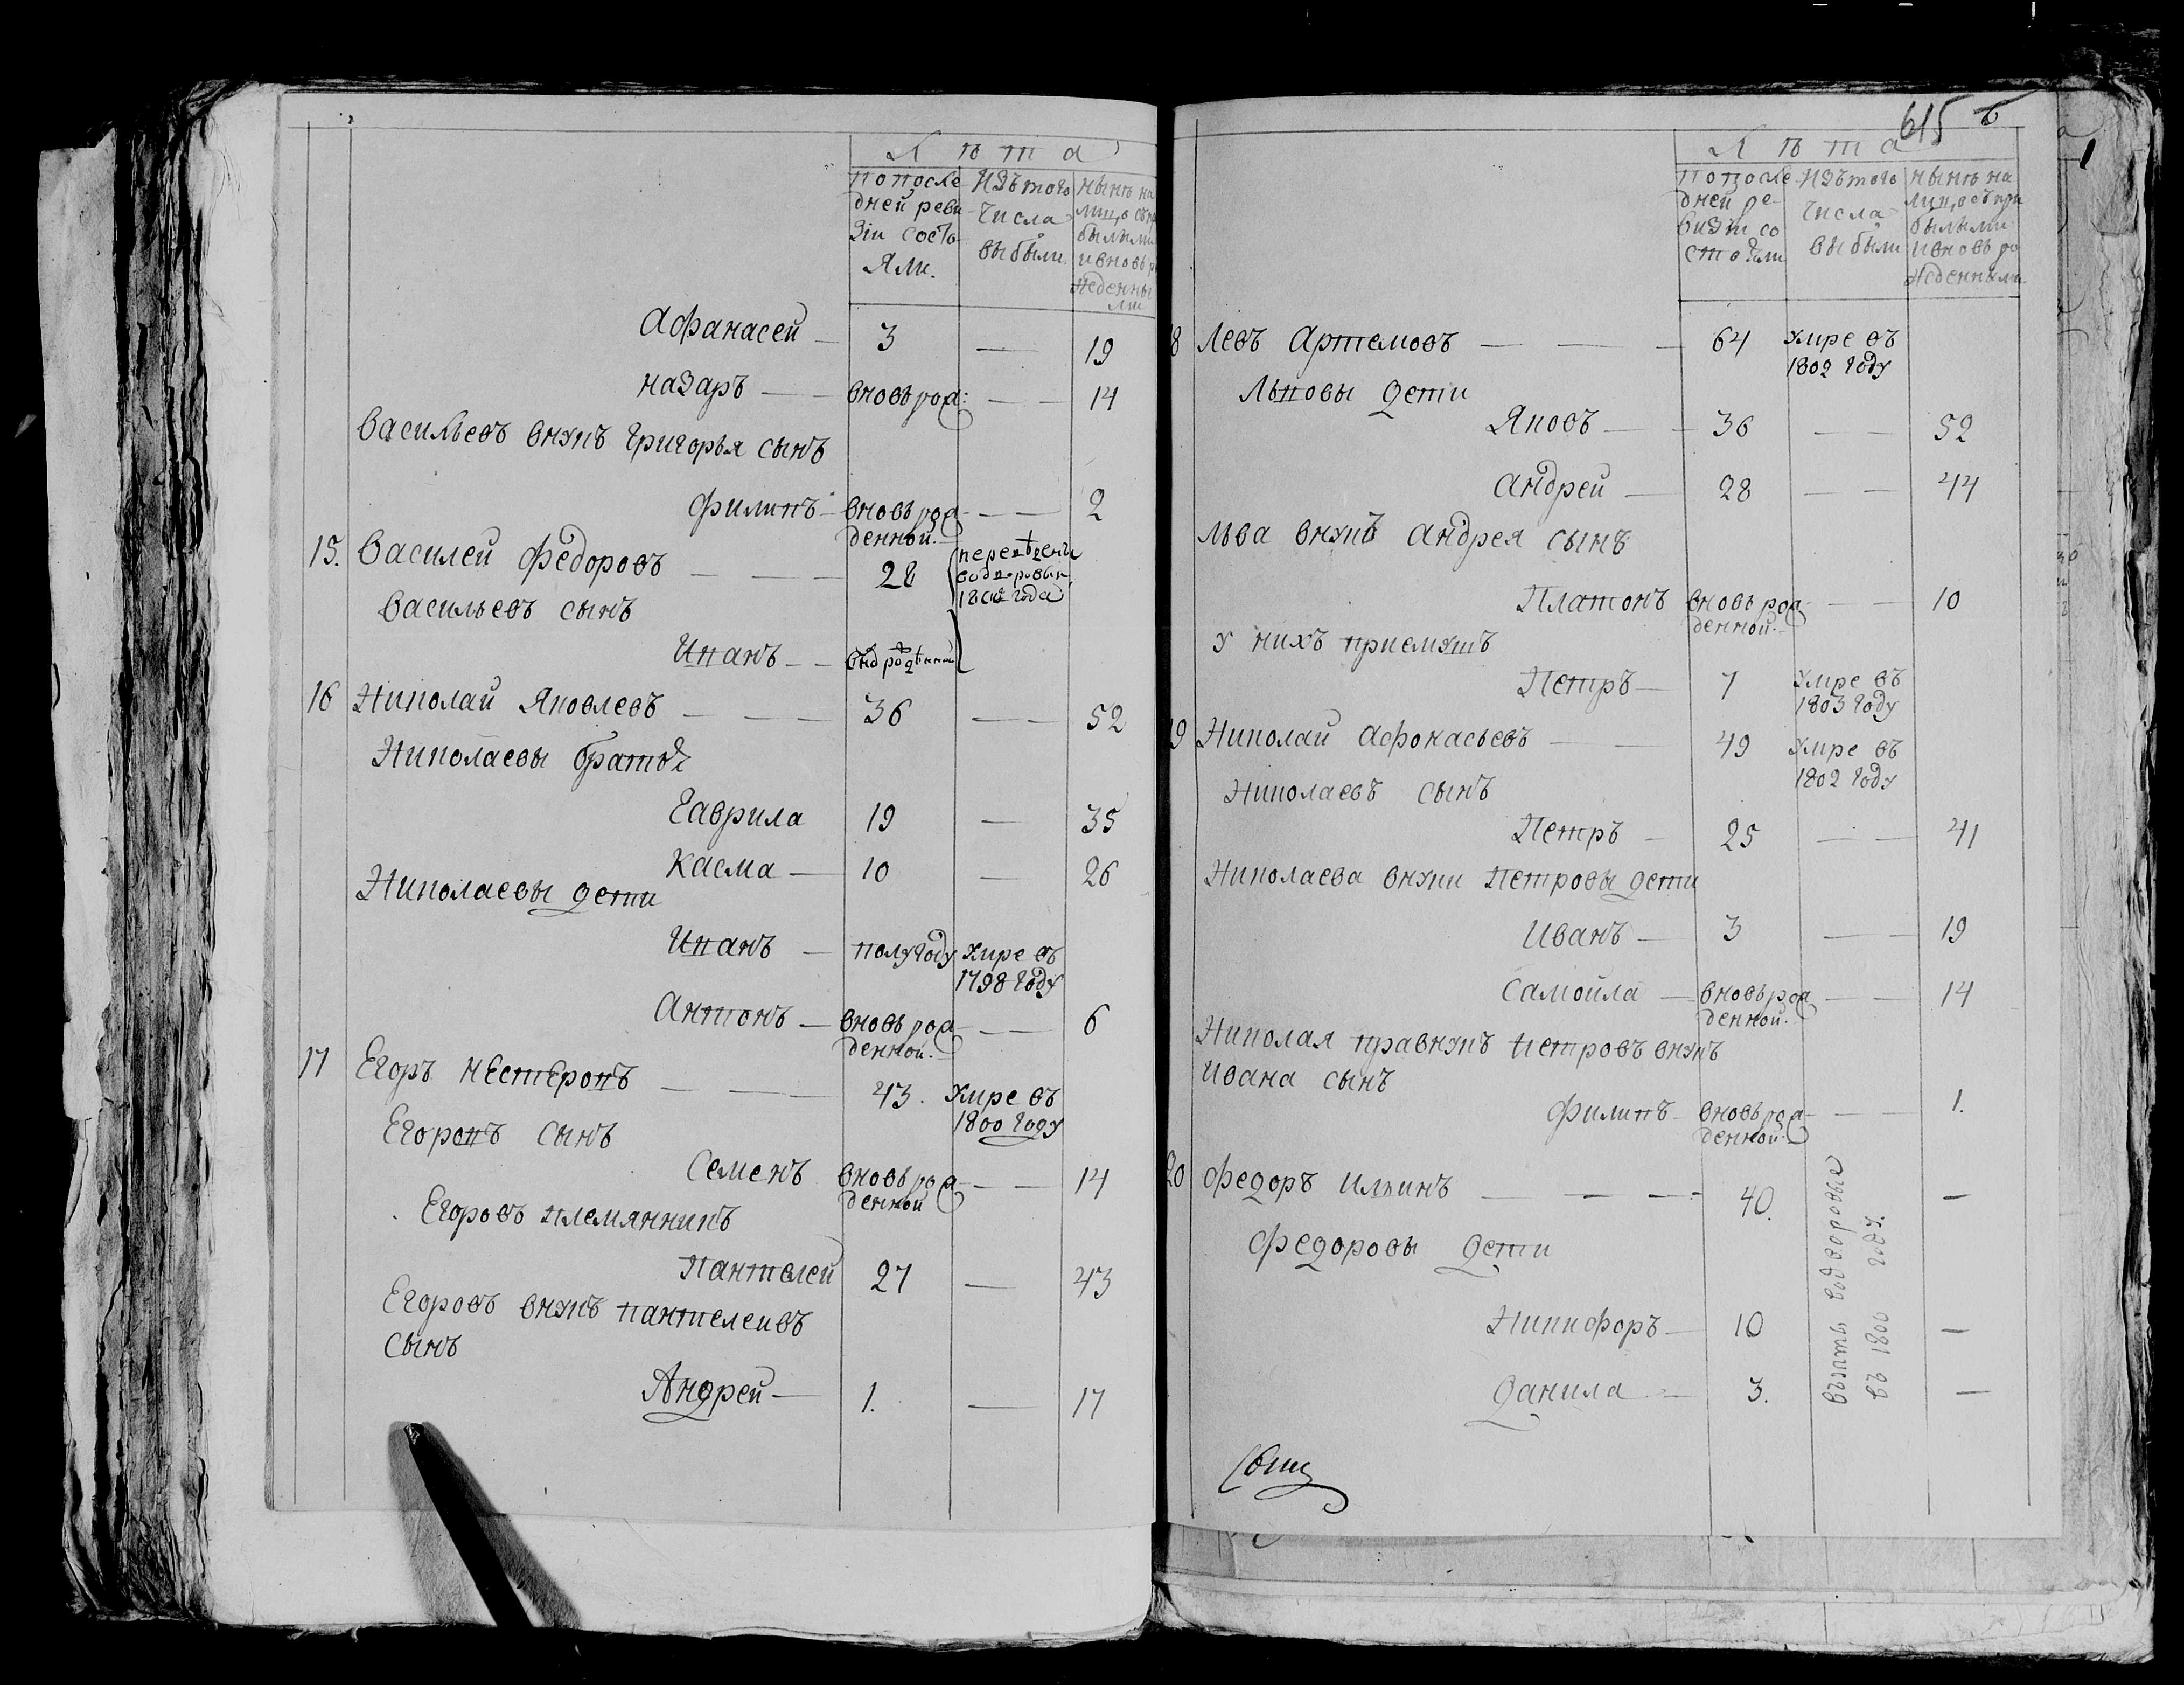 Лѣта
по после
дней реви
зiи состо
яли.
изъ того
числа
выбыли.
нынѣ на
лицо съ
былыми
и вновь р
жденны
ми
Афанасей — 3 — 19
назаръ — вновь рож: — 14
Васильевъ внукъ Григорья сынъ
филипъ — вновь рож-
денной. — 2
15. Василей Федоровъ — 28
1800 года
Васильевъ сынъ
Иванъ —
16 Николай Яковлевъ — 36 — 52
Николаевы братья
Гаврила 19 — 35
Касма — 10 — 26
Николаевы дети
Иванъ — полугоду умре въ
1798 году
Антонъ — вновь рож-
денной. — 6
17 Егоръ нестеровъ — 43. умре въ
1800 году
Егоровъ сынъ
Семенъ вновь рож-
денной — 14
Егоровъ племянникъ
Пантелей 27 — 43
Егоровъ внукъ пантелеивъ
сынъ
Андрей — 1. — 17
615
Лѣта
по после
дней ре-
визiи со
стояли
изъ того
числа
выбыли
нынѣ на
лицо съ при
былыми
и вновь ро
жденными
8 Левъ Артемовъ — 64 умре въ
1802 году
Львовы дети
Яковъ — 36 — 52
Андрей — 28 — 44
Льва внукъ андрея сынъ
Платонъ вновь рож-
денной. — 10
у нихъ приемышъ
Петръ — 7 умре въ
1803 году
9 Николай Афонасьевъ — 49 умре въ
1802 году
Николаевъ сынъ
Петръ — 25 — 41
Николаева внуки петровы дети
Иванъ — 3 — 19
Самойла — вновь рож
денной. — 14
Николая правнукъ петровъ внукъ
Ивана сынъ
филипъ — вновь рож-
денной. — 1.
20 Федоръ Ильинъ — 40. —
Федоровы дети
Никифоръ — 10 —
Данила — 3. —
въ 1800 году.